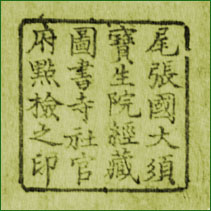 尾張國大須
寶生院經藏
圖書寺社官
府點檢之印